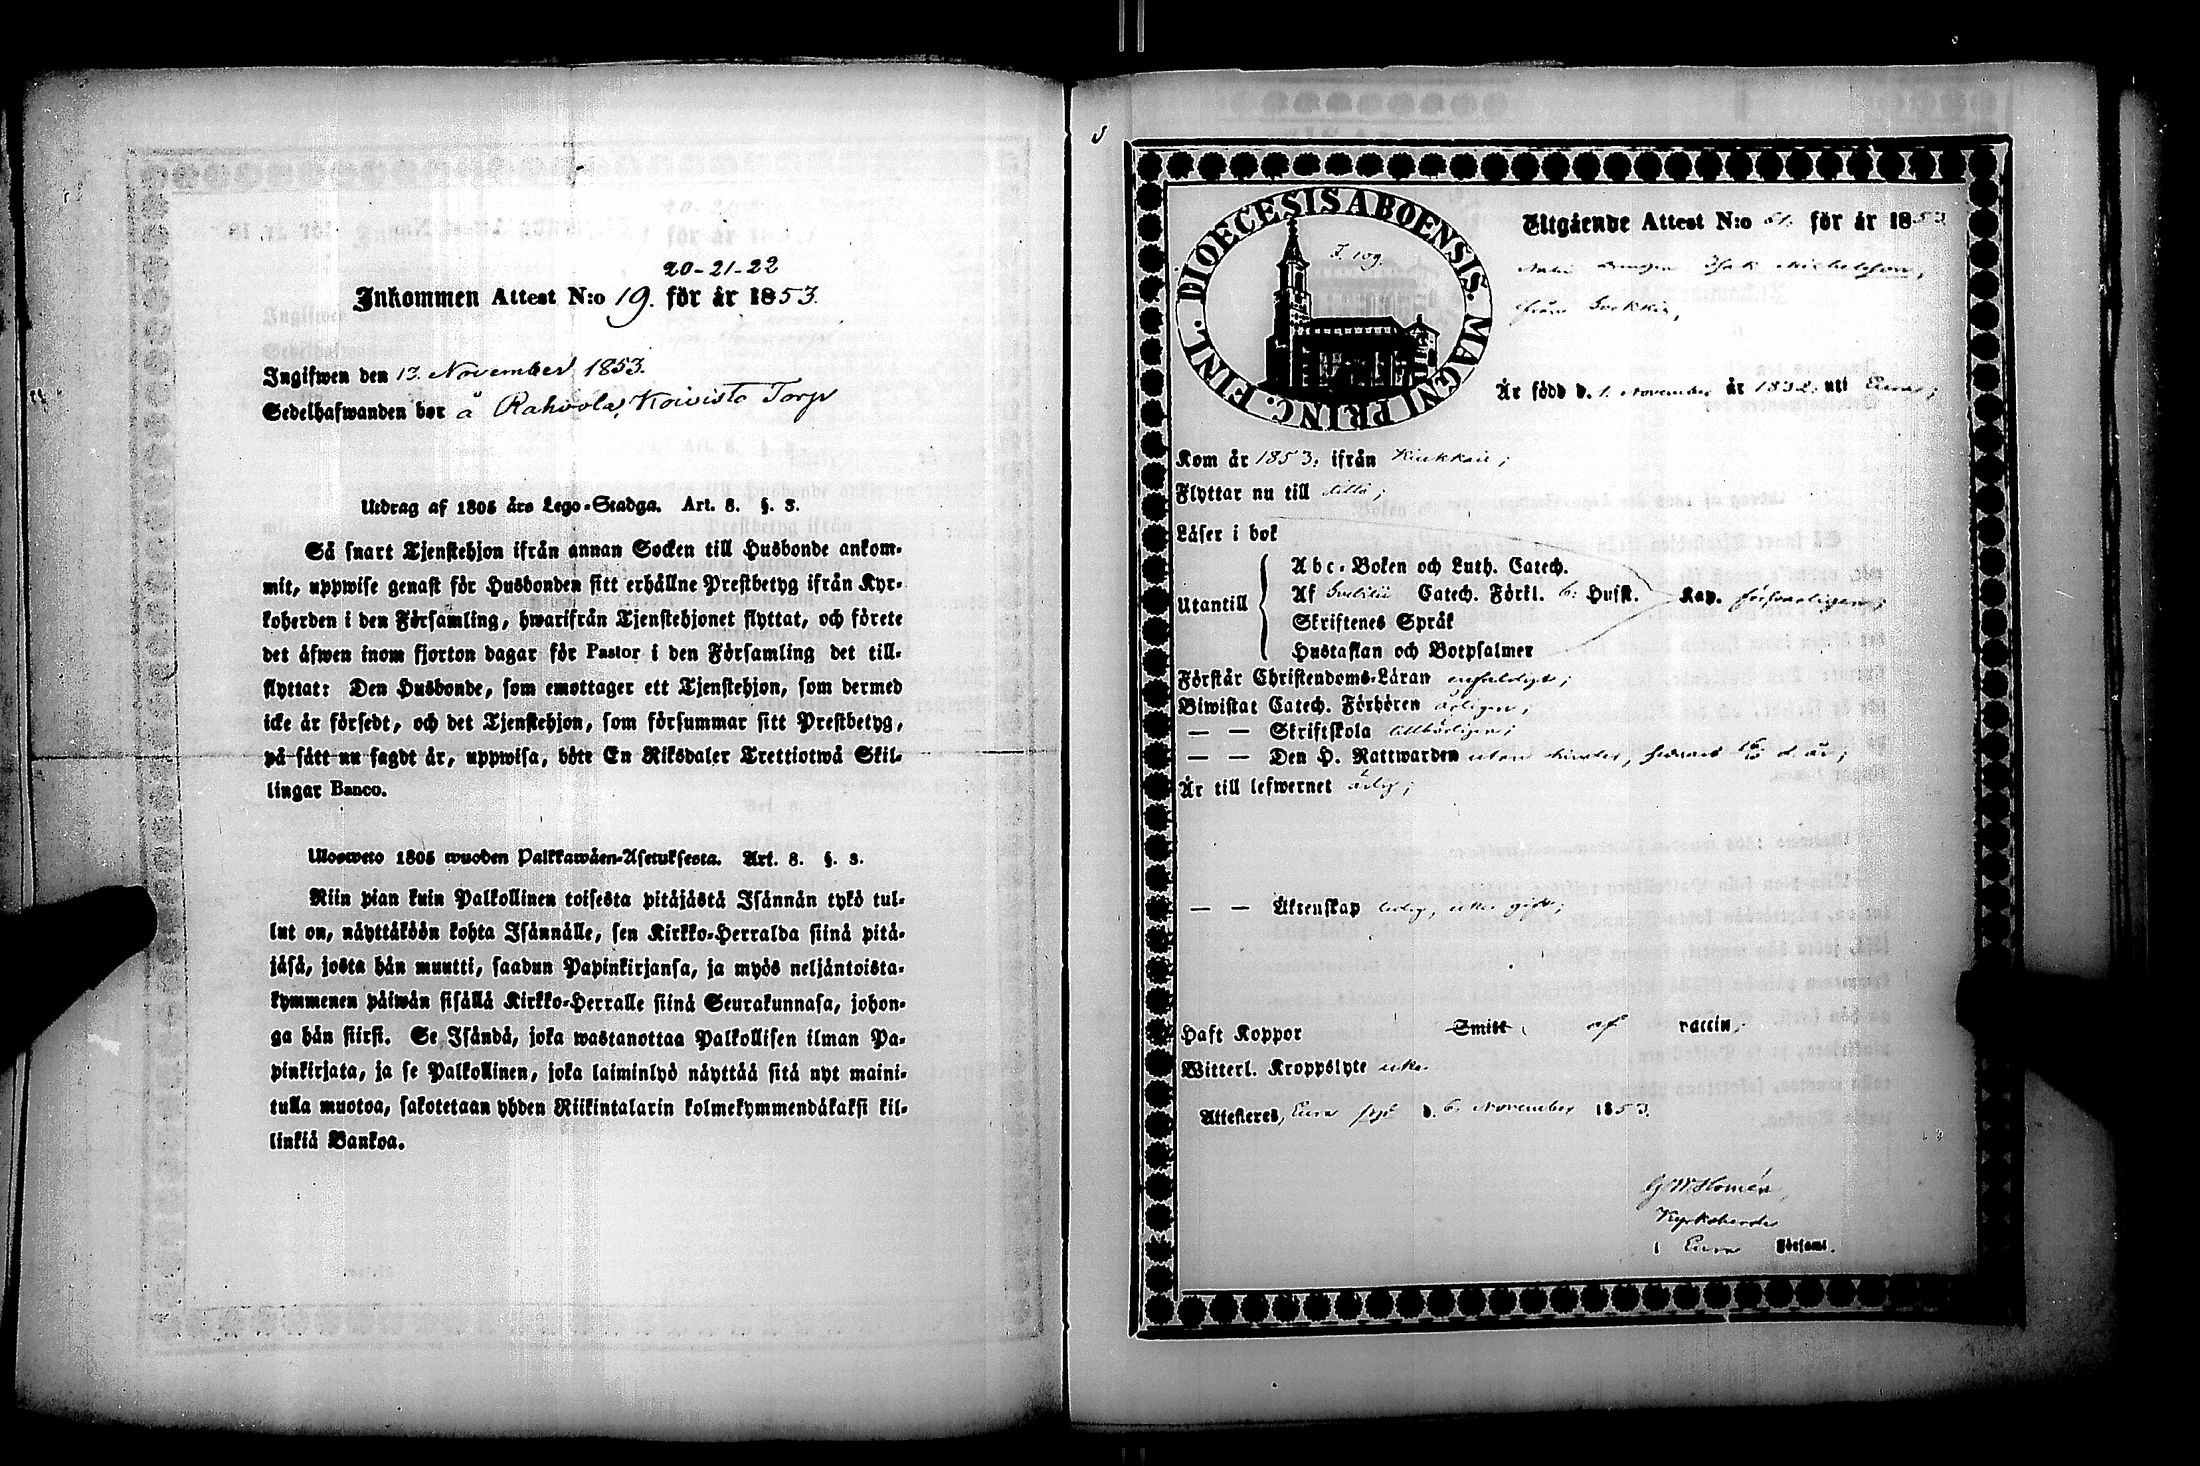 20-21-22
Inkommen Attest N:o 19. för år 1853.
Ingifwen den 13. November 1853.
Sedelhafwanden bor å Rahvola, Koivisto Torp
Utdrag af 1805 års Lego-Stadga. Art. 8. §. 3.
Så snart Tjenstehjon ifrån annan Socken till Husbonde ankom-
mit, uppwise genast för Husbonden sitt erhållne Prestbetyg ifrån Kyr-
koherden i den Församling, hwarifrån Tjenstehjonet flyttat, och förete
det äfwen inom fjorton dagar för Pastor i den Församling det till-
flyttat: Den Husbonde, som emottager ett Tjenstehjon, som dermed
icke är försedt, och det Tjenstehjon, som försummar sitt Prestbetyg,
på sätt nu sagdt är, uppwisa, böte En Riksdaler Trettiotwå Skil-
lingar Banco.
Ulosweto 1805 wuoden Palkkawäen-Asetuksesta. Art. 8. §. 3.
Niin pian kuin Palkollinen toisesta pitäjästä Isännän tykö tul-
lut on, näyttäköön kohta Isännälle, sen Kirkko-Herralda siinä pitä-
jäsä, josta hän muutti, saadun Papinkirjansa, ja myös neljäntoista-
kymmenen päiwän sisällä Kirkko-Herralle siinä Seurakunnasa, johon-
ga hän siirsi. Se Isändä, joka wastanottaa Palkollisen ilman Pa-
pinkirjata, ja se Palkollinen, joka laiminlyö näyttää sitä nyt maini-
tulla muotoa, sakotetaan yhden Riikintalarin kolmekymmendäkaksi kil-
linkiä Bankoa.
DIOECESIS ABOENSIS. MAGNI PRINC. FINL.
I. 109.
Utgående Attest N:o för år 1853
Drengen Isak Michelsson,
från
Är född d. 1. November år 1832. uti Eura;
Kom år 1853, ifrån Kiukkais;
Flyttar nu till ditto;
Läser i bok
Utantill
Abc-Boken och Luth. Catech.
Af Catech. Förkl. 6: Husk. Kap. försvarligen;
Skriftenes Språk
Hustaflan och Botpsalmer
Förstår Christendoms-Läran enfaldigt;
Biwistat Catech. Förhören årligen;
— — Skriftskola
— — Den H. Nattwarden utan hinder, senast d. år;
Är till lefwernet ärlig;
— — Äktenskap ledig, icke gift;
Haft Koppor Smitt af vaccin.
Witterl. Kroppslyte icke.
Attesteres, Eura d. 6. November 1853.
Kyrkoherde
i Eura Församl.